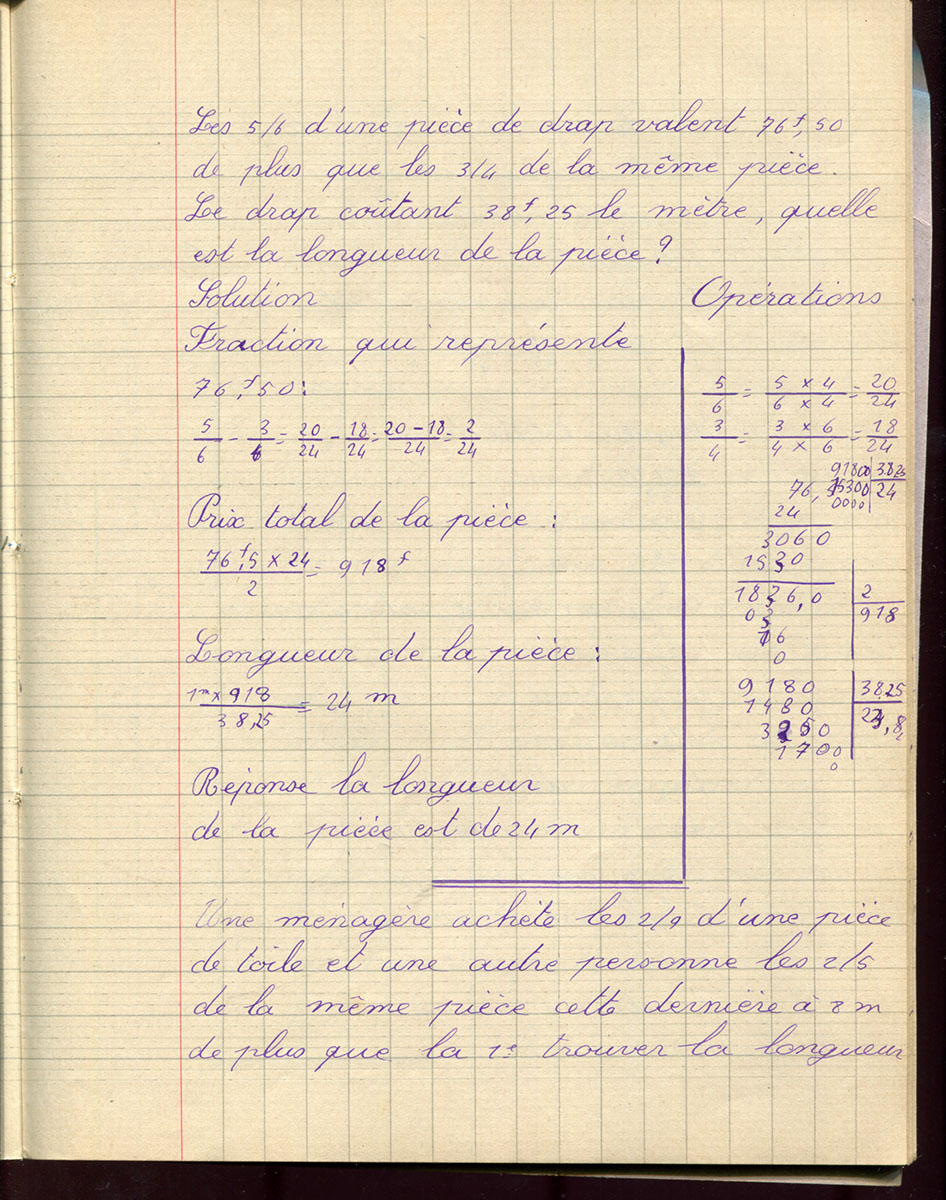 Les 5/6 d'une pièce de drap valent 76f,50
de plus que les 3/4 de la même pièce.
Le drap coûtant 38f,25 le mètre, quelle
est la longueur de la pièce ?
Solution
Opérations
Fraction qui représente
76,f50:
5/6 - 3/6 = 20/24 - 18/24 = 20 - 18/24 = 2/24
Prix total de la pièce :
76f,5 x 24/2 = 918f
Longueur de la pièce :
1m x 918/38,25 = 24 m
Réponse la longueur
de la pièce est de 24 m
5/6 = 5 x 4/6 x 4 = 20/24
3/4 = 3 x 6/4 x 6 = 18/24
91800 3825
15300 24
0000
76,
24
3060
1530
1836,0 2
03 918
16
0
9180 38,25
1480
3250
1700
0
Une ménagère achète les 2/9 d'une pièce
de toile et une autre personne les 2/5
de la même pièce cette dernière à 8 m
de plus que la 1e trouver la longueur